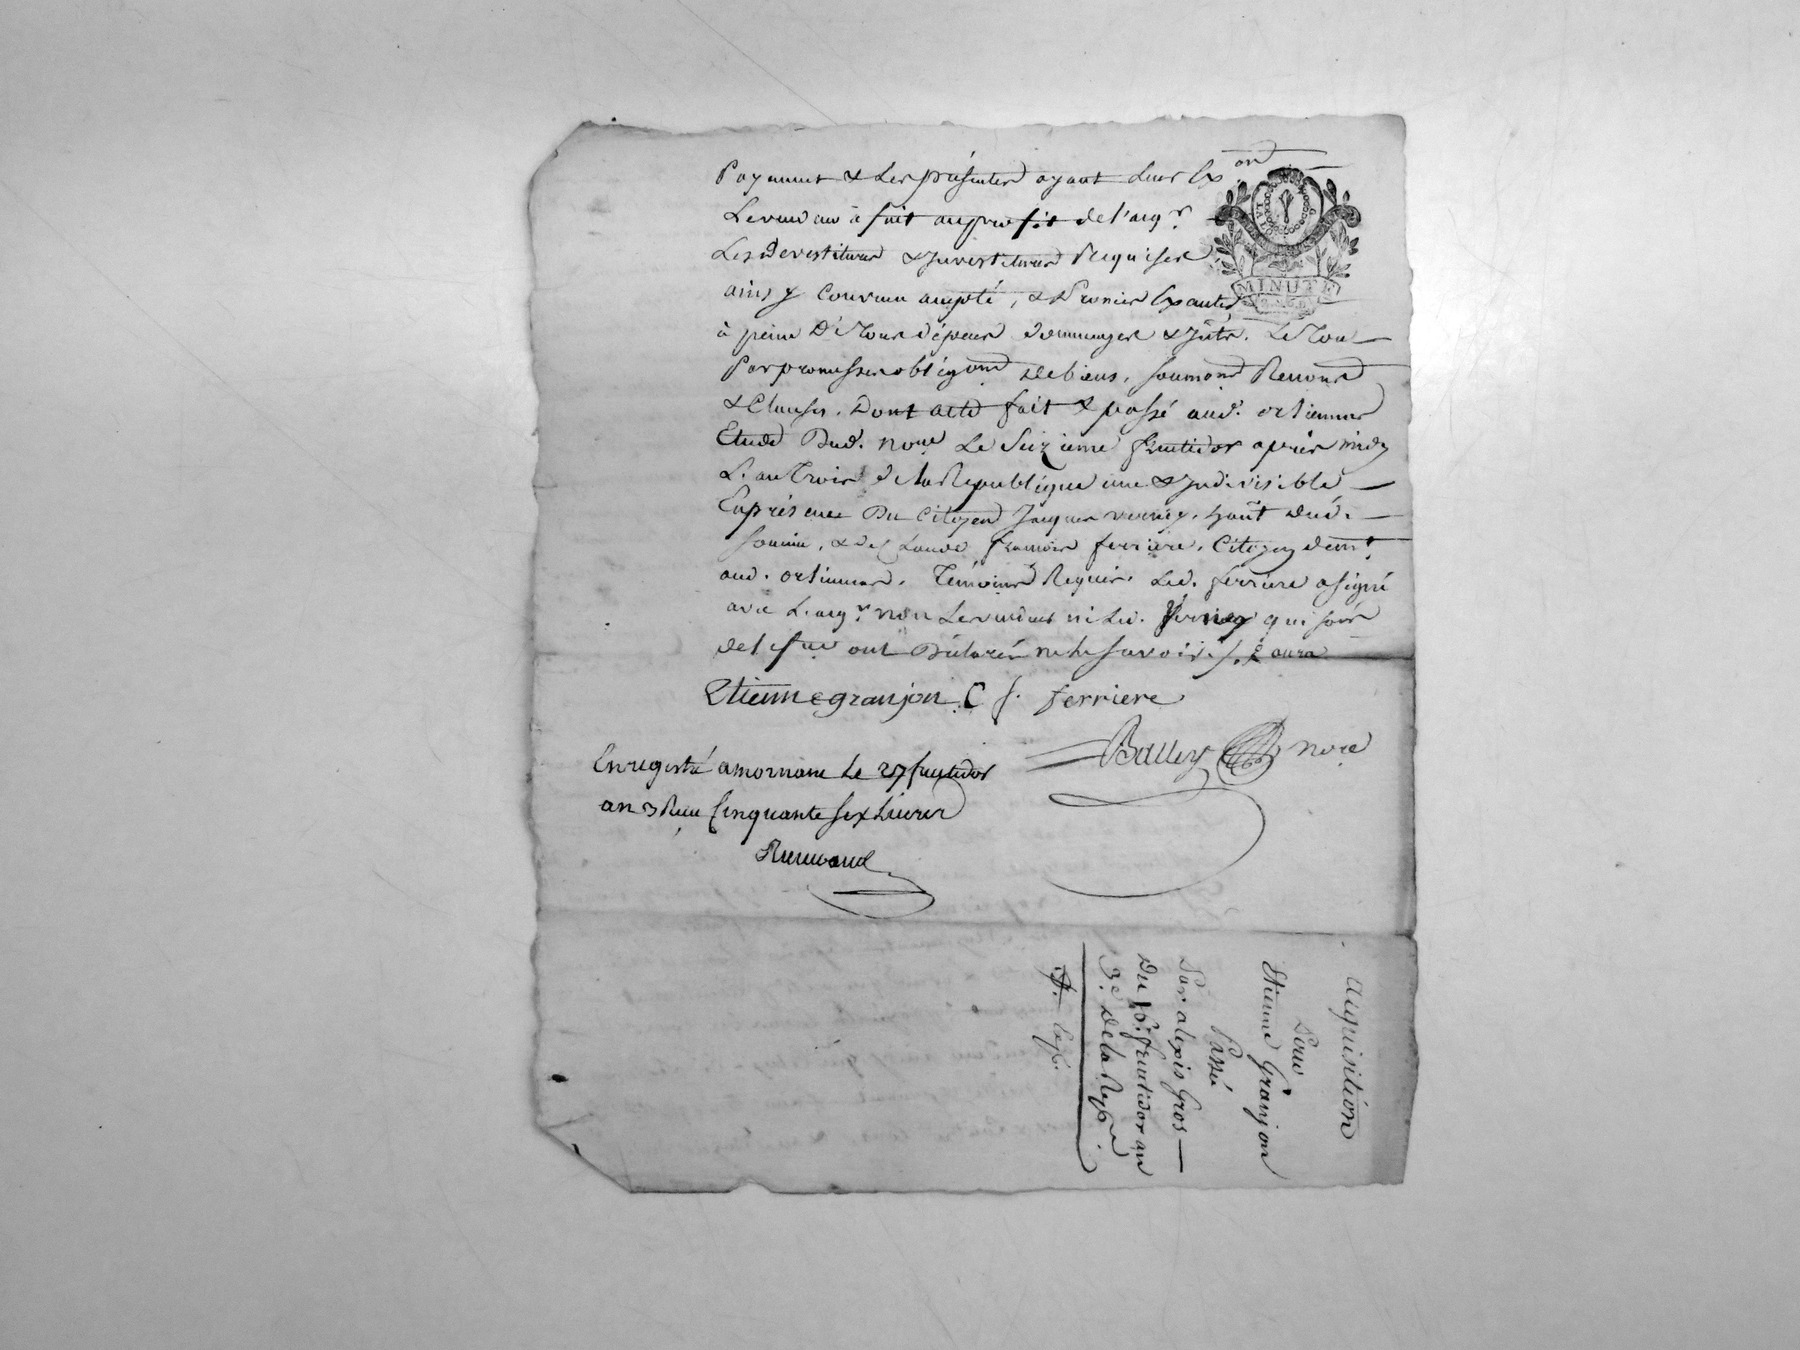 Payement & les présentes ayant leur Exon
Le vendeur à fait au profit de l'aqr.
Les devestitures & Investitures Requises
ainsy Convenu accepté, &
MINUTE
à peine De Tous dépens dommages & Intts. Le Tout
Par promesses obligond de biens, soumond Renond
& Clauses. Dont acte fait & passé aud. ortiemes
Etude Dud. nore Le Seizieme fructidor après midy
L'an Trois de la Republique une & Indivisible
En présence Du Citoyen Jacques verney, hant dud.
& de Claude francois ferriere, Citoyen demt.
aud. Témoins Requis. Led. ferriere a signé
avec L'aqr. non Le vendeur ni Led. Verney qui sur
de ce ont Déclarés ne le savoir.
Etienne granjon C f. ferriere
Balley nore
Enregistré a mornam le 27 fructidor
an 3 Recu Cinquante Six Livres
Acquisition
Pour
Etienne Granjon
Passé
Par alexis Gros
Du 16. fructidor an
3e. de la Rep.
Exp.